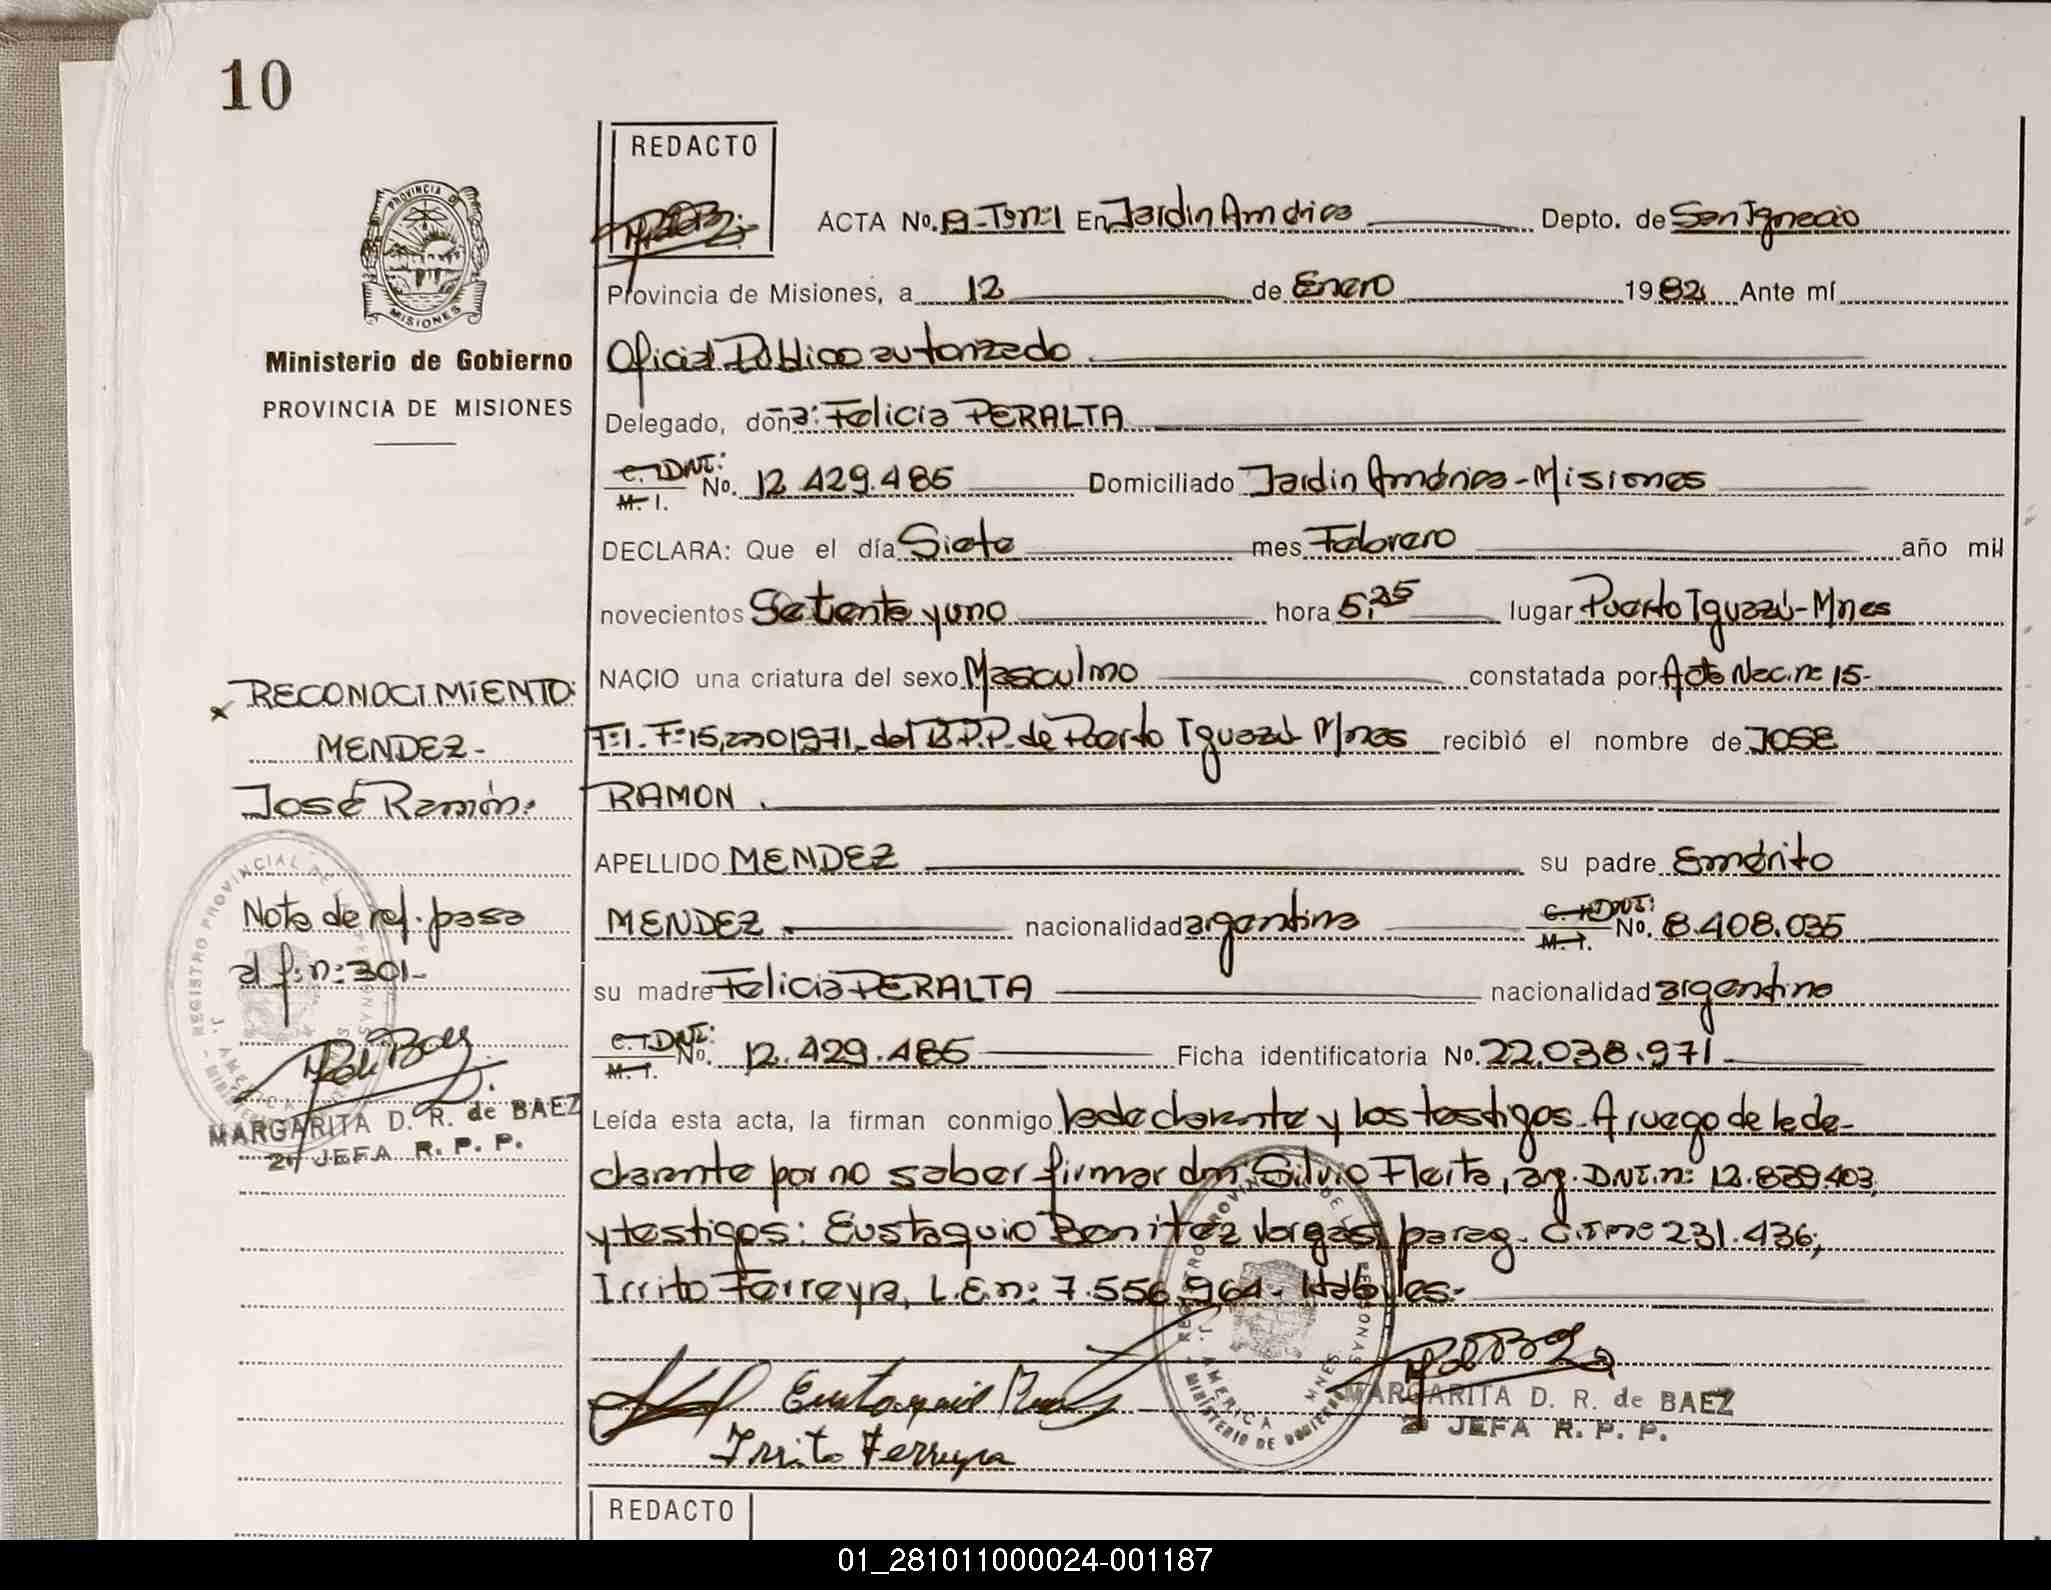 10
REDACTO
ACTA No. A-Tº1nº1 En Jardin América Depto. de San Ignacio
PROVINCIA DE MISIONES
Provincia de Misiones, a 12 de Enero 1982 Ante mí
Ministerio de Gobierno
PROVINCIA DE MISIONES
Oficial Público autorizado
Delegado, doña: Felicia PERALTA
C. I. DNI: M. I. No. 12.429.485 Domiciliado Jardin América-Misiones
DECLARA: Que el día Siete mes Febrero año mil
novecientos Setenta y uno hora 5,25 lugar Puerto Iguazú-Mnes
NACIO una criatura del sexo Masculino constatada por Acta Nac.nº 15-
Tº1. Fº15, año 1971, del R.P.P. de Puerto Iguazú Mnes recibió el nombre de JOSE
RAMON.
APELLIDO MENDEZ su padre Emérito
MENDEZ nacionalidad argentina C. I. DNI: M. I. No. 8.408.035
su madre Felicia PERALTA nacionalidad argentina
C. I. DNI: M. I. No. 12.429.485 Ficha identificatoria No. 22.038.971
Leída esta acta, la firman conmigo la declarante y los testigos. A ruego de la de-
clarante por no saber firmar don: Silvio Fleita, arg. DNI.nº: 12.839.403,
y testigos: Eustaquio Benitez Vargas, parag. C.I nº 231.436;
Irrito Ferreyra, L.E.nº: 7.556.964. Hábiles.-
Irrito Ferreyra
MARGARITA D. R. de BAEZ
2ª JEFA R. P. P.
REGISTRO PROVINCIAL DE LAS PERSONAS
J. AMERICA MNES
MINISTERIO DE GOBIERNO
RECONOCIMIENTO:
MENDEZ-
José Ramón:
Nota de ref. pasa
al f:nº:301-
REGISTRO PROVINCIAL DE LAS PERSONAS
J. AMERICA
MARGARITA D. R. de BAEZ
2ª JEFA R. P. P.
REDACTO
01_281011000024-001187